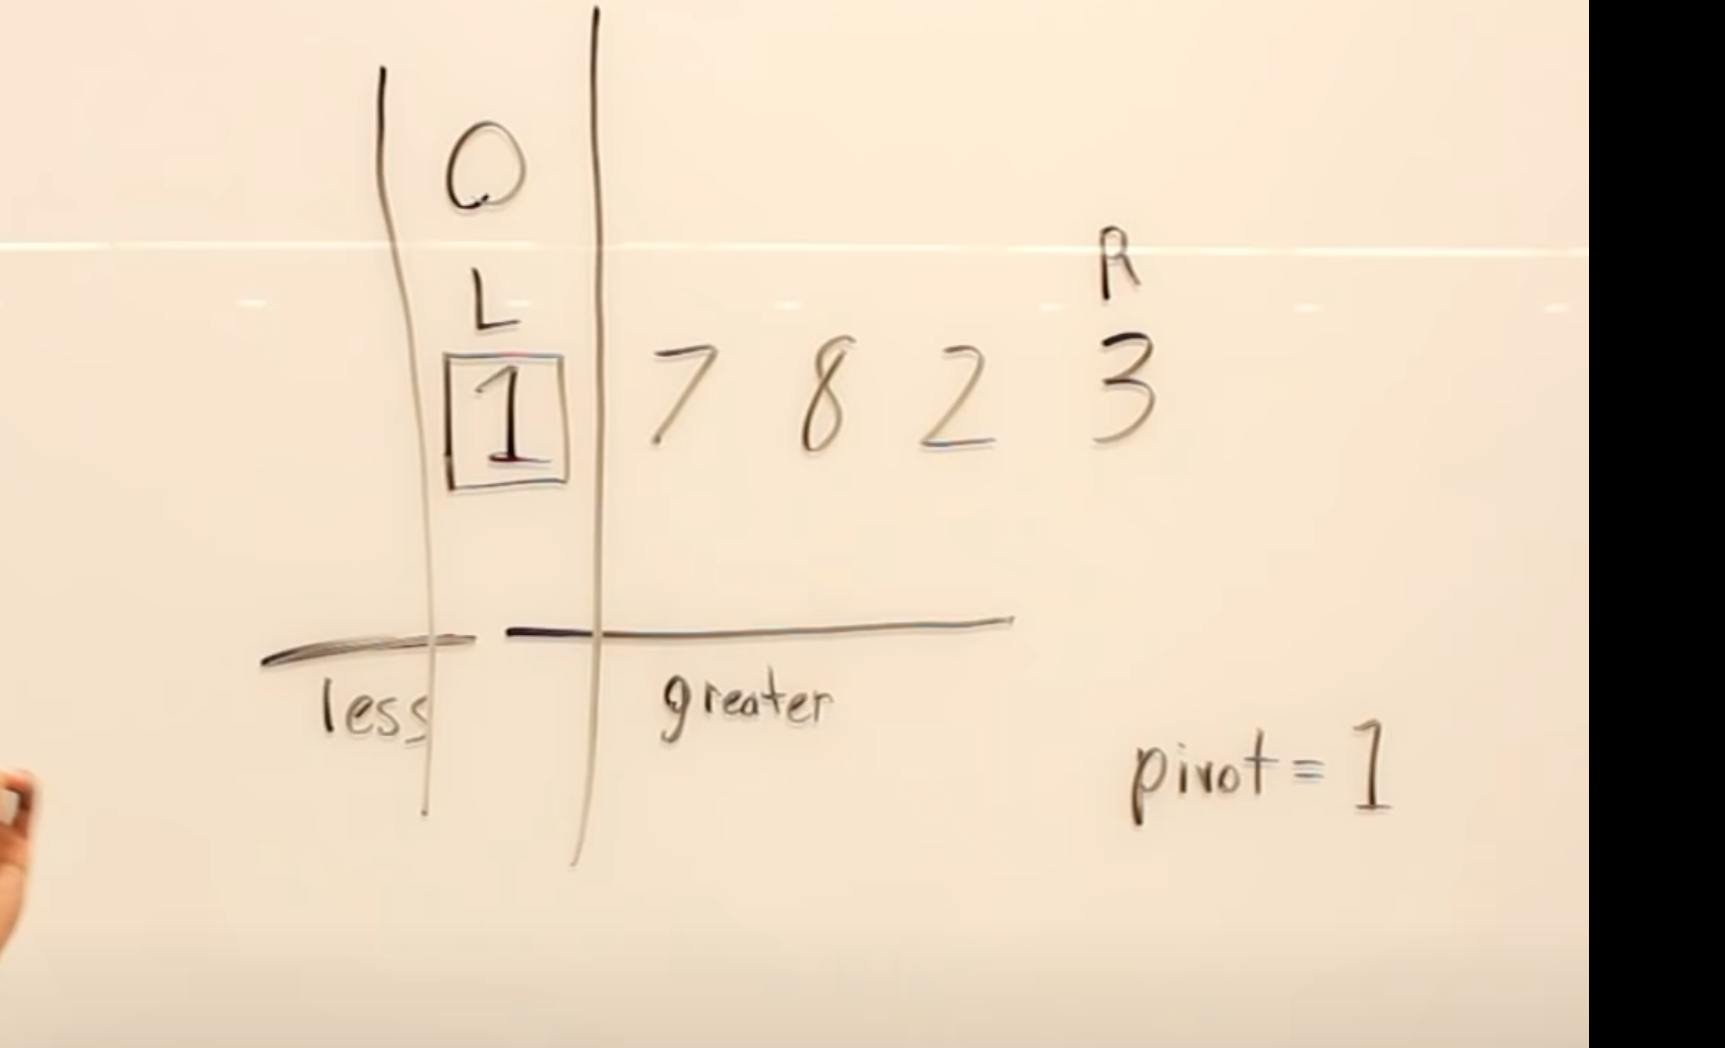 0
L R
1 7 8 2 3
less greater
pivot = 1